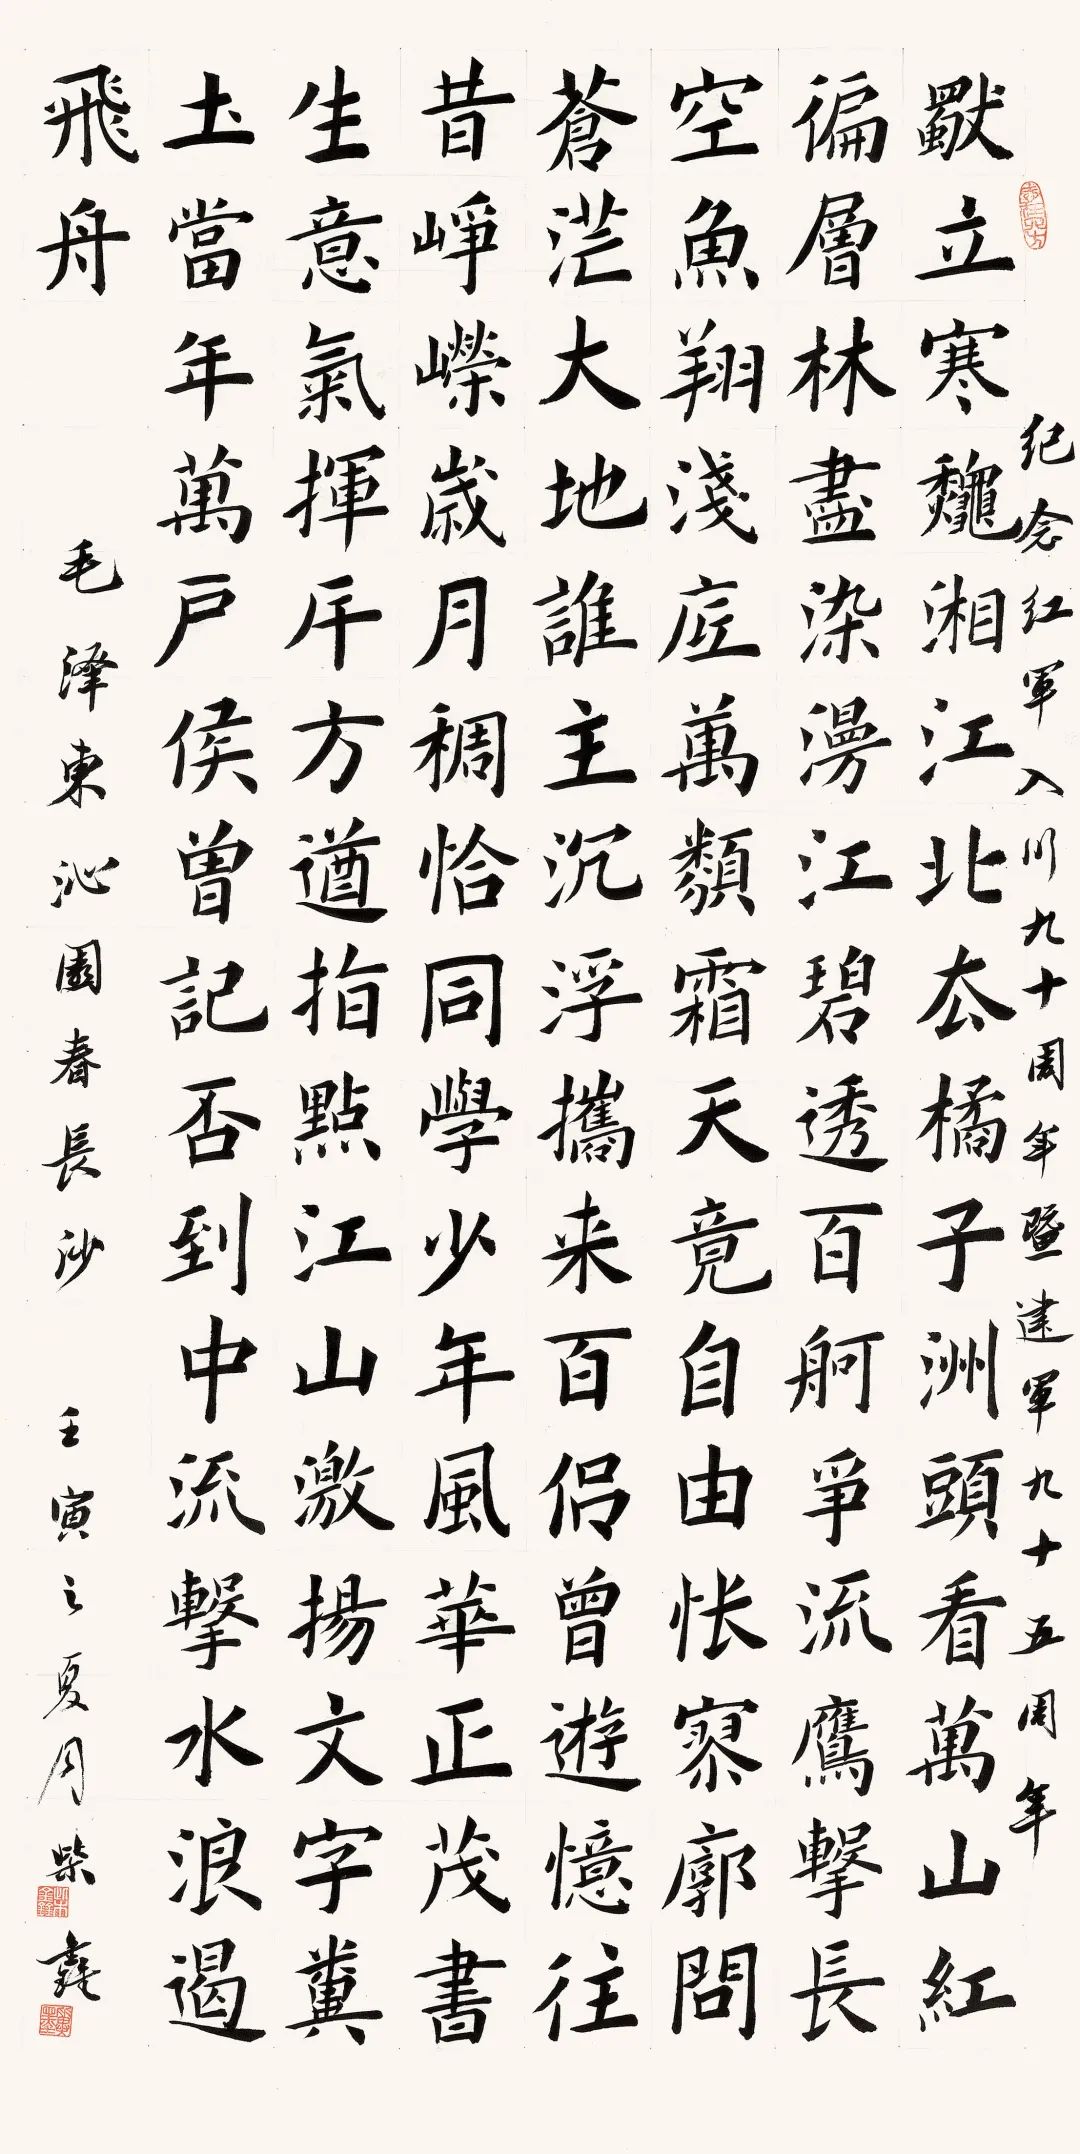 纪念红軍入川九十周年暨建軍九十五周年
獨立寒龝湘江北厺橘子洲頭看萬山紅
徧層林盡染漫江碧透百舸爭流鷹擊長
空魚翔淺底萬類霜天竟自由怅寥廓問
蒼茫大地誰主沉浮攜来百侣曾遊憶往
昔崢嶸歲月稠恰同學少年風華正茂書
生意氣揮斥方遒指點江山激揚文字糞
土當年萬戶侯曾記否到中流擊水浪遏
飛舟
毛泽東沁園春長沙 壬寅之夏月柴